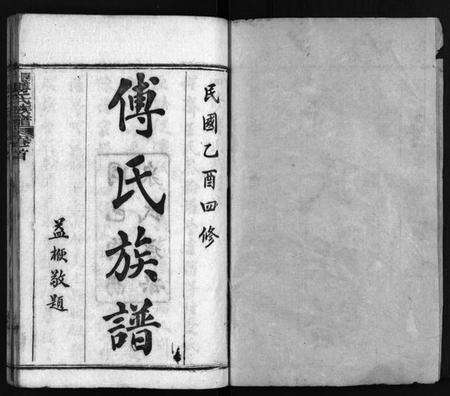 民國乙酉四修
傅氏族譜
益橛敬題